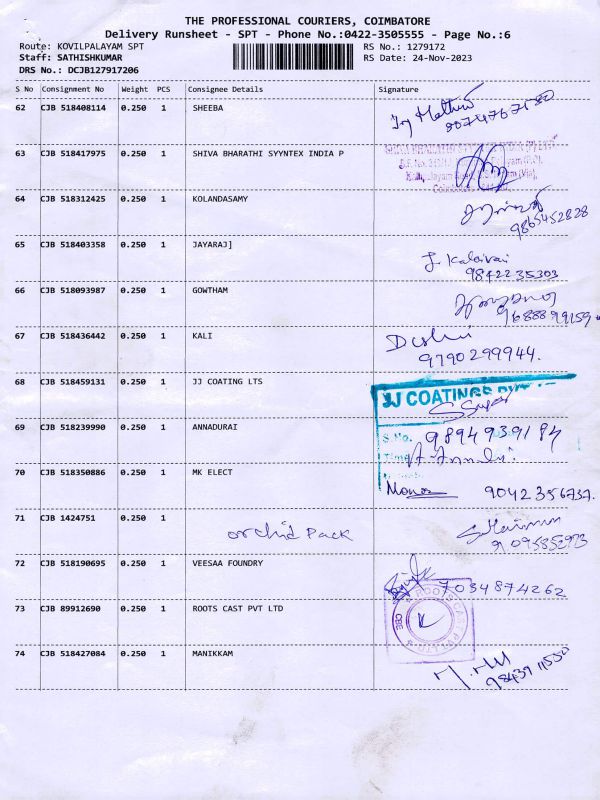 THE PROFESSIONAL COURIERS, COIMBATORE
Delivery Runsheet - SPT - Phone No.:0422-3505555 - Page No.:6
Route: KOVILPALAYAM SPT RS No.: 1279172
Staff: SATHISHKUMAR RS Date: 24-Nov-2023
DRS No.: DCJB127917206
S No Consignment No Weight PCS Consignee Details Signature
62 CJB 518408114 0.250 1 SHEEBA
63 CJB 518417975 0.250 1 SHIVA BHARATHI SYYNTEX INDIA P
64 CJB 518312425 0.250 1 KOLANDASAMY
9865452828
65 CJB 518403358 0.250 1 JAYARAJ]
J. Kalaivai
9842235303
66 CJB 518093987 0.250 1 GOWTHAM
9688899159
67 CJB 518436442 0.250 1 KALI
9790299944.
68 CJB 518459131 0.250 1 JJ COATING LTS
JJ COATINGS
69 CJB 518239990 0.250 1 ANNADURAI
S.No. 9894939184
70 CJB 518350886 0.250 1 MK ELECT
9042356737.
71 CJB 1424751 0.250 1
orchid pack
72 CJB 518190695 0.250 1 VEESAA FOUNDRY
7034874262
73 CJB 89912690 0.250 1 ROOTS CAST PVT LTD
CBE
74 CJB 518427084 0.250 1 MANIKKAM